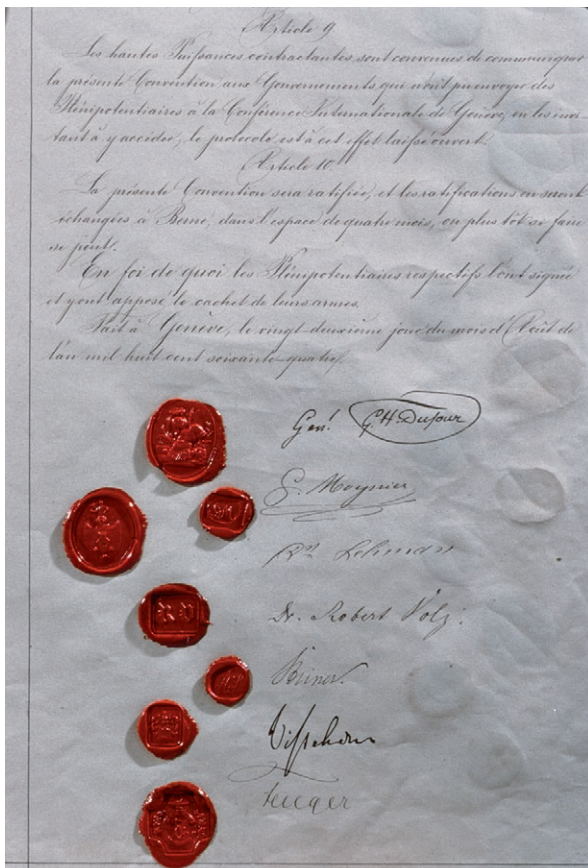 Article 9.
Les hautes Puissances contractantes sont convenues de communiquer
la présente Convention aux Gouvernements qui n'ont pu envoyer des
Plénipotentiaires à la Conférence Internationale de Genève, en les invi-
tant à y accéder; le protocole est à cet effet laissé ouvert.
Article 10.
La présente Convention sera ratifiée, et les ratifications en seront
échangées à Berne, dans l'espace de quatre mois, ou plus tôt si faire
se peut.
En foi de quoi les Plénipotentiaires respectifs l'ont signée
et y ont apposé le cachet de leurs armes.
Fait à Genève, le vingt-deuxième jour du mois d'Août de
l'an mil huit cent soixante-quatre.
Genl. G. H. Dufour
G. Moynier
Dr. Lehmann
Dr. Robert Volz.
Steiner.
Visschers